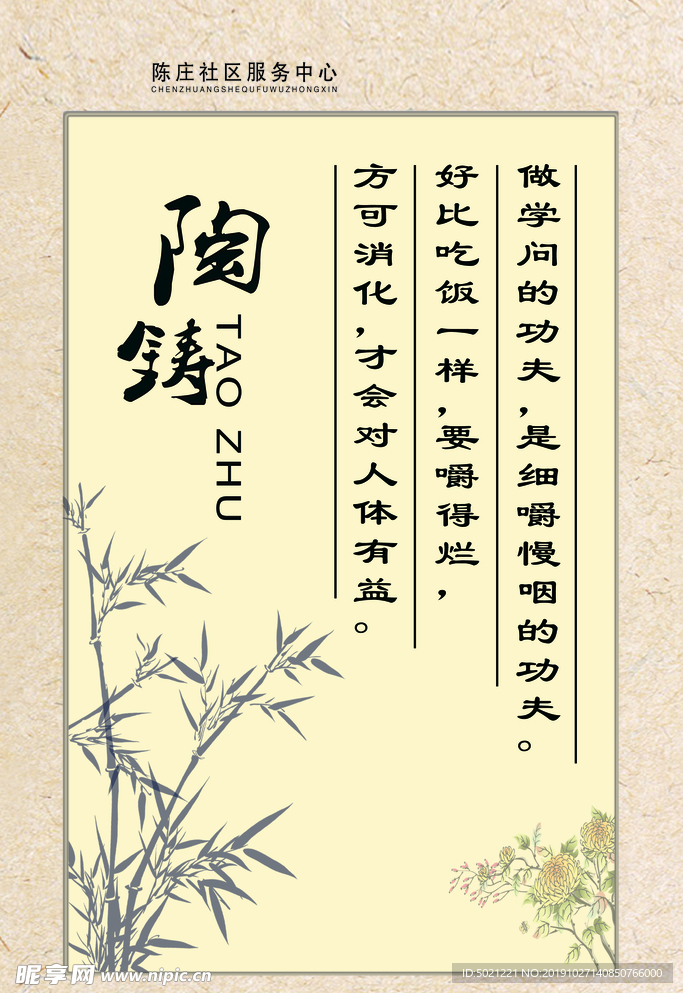 陈庄社区服务中心
CHENZHUANGSHEQUFUWUZHONGXIN
做学问的功夫，是细嚼慢咽的功夫。
好比吃饭一样，要嚼得烂，
方可消化，才会对人体有益。
陶铸
TAO ZHU
昵享网 www.nipic.cn
ID:5021221 NO:20191027140850766000